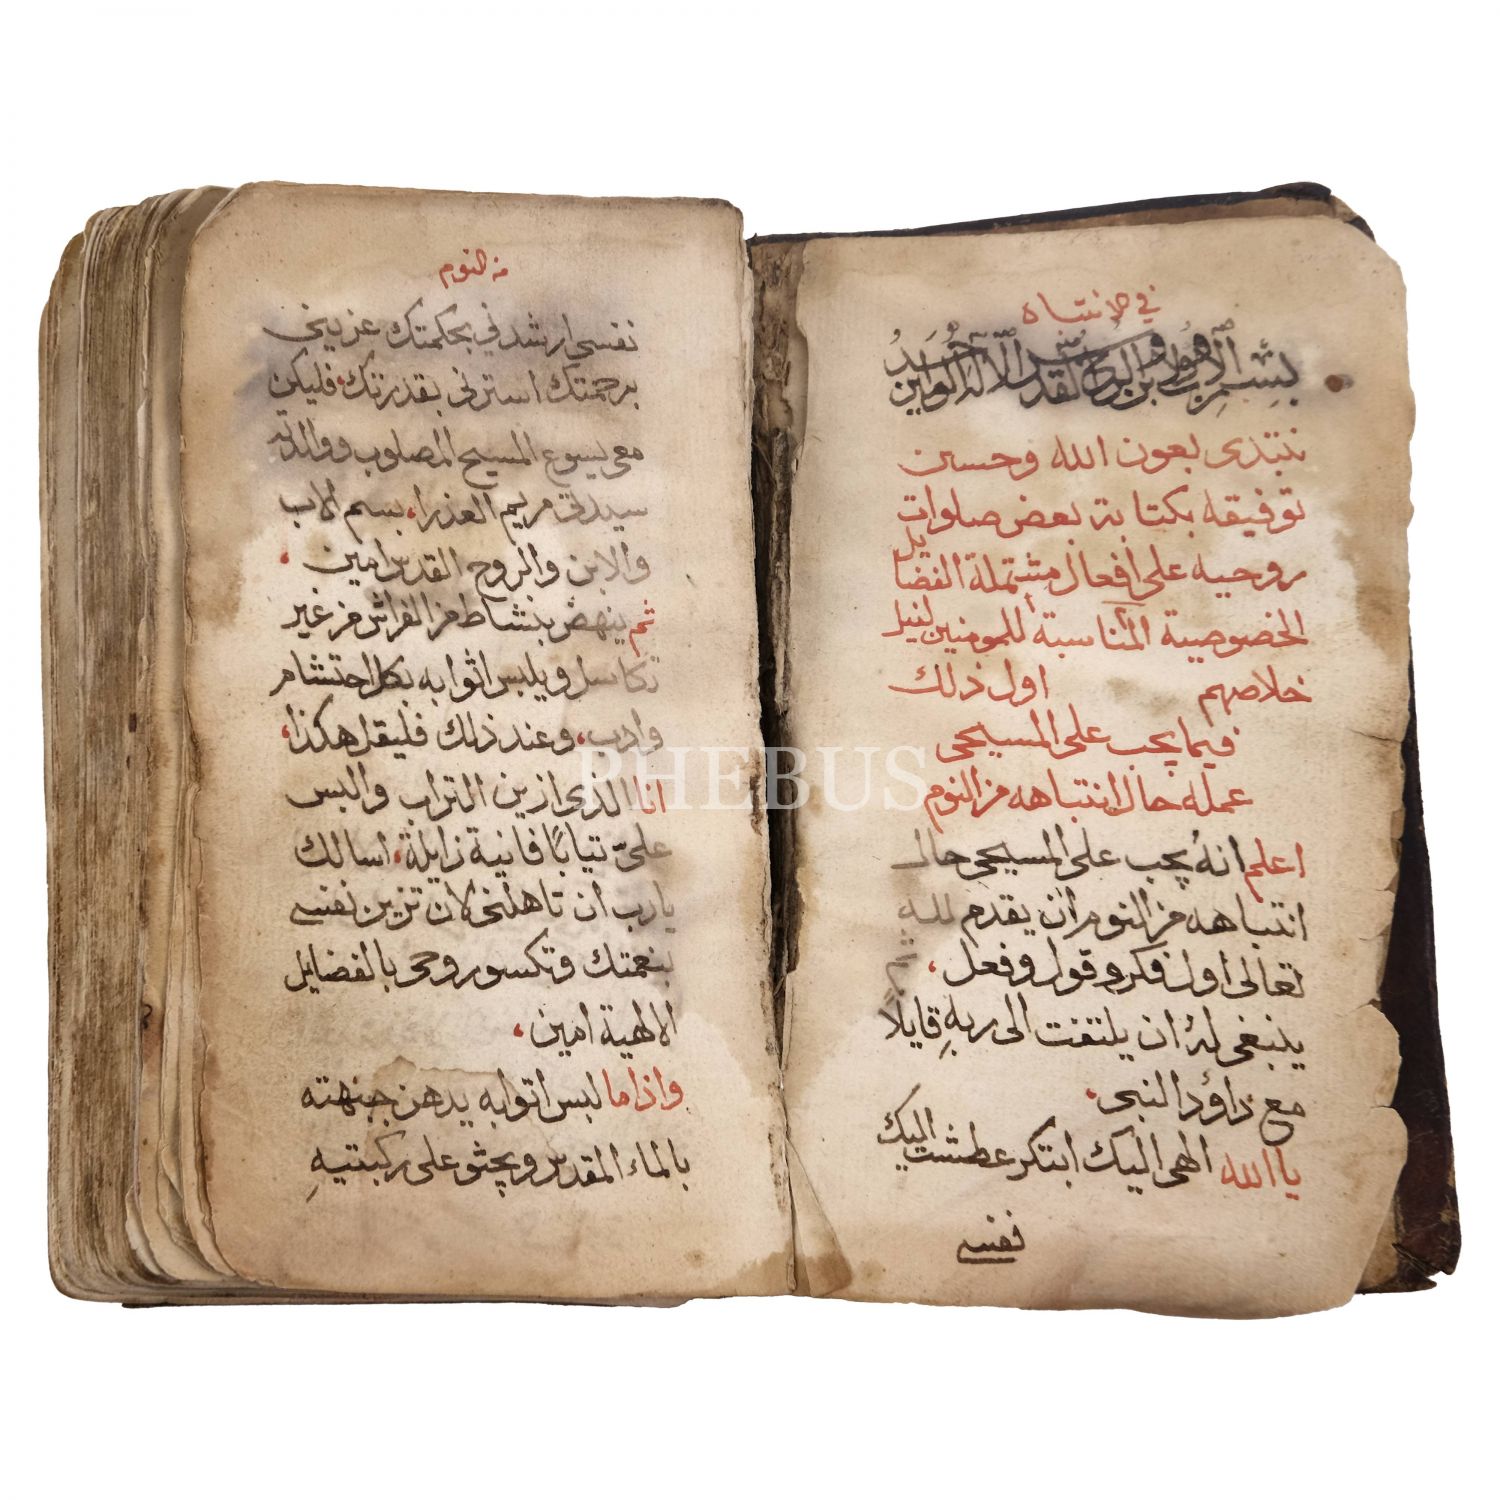 في الانتباه
بسم الاب والابن والروح القدس الاله الواحد امين
نبتدى بعون الله وحسن
توفيقه بكتابة بعض صلوات
روحيه على افعال مشتملة الفضايل
الخصوصية المناسبة للمومنين لنيل
خلاصهم اول ذلك
فيما يجب على المسيحى
عمله حال انتباهه من النوم
اعلم انهُ يجب على المسيحى حال
انتباهه من النوم ان يقدم لله
تعالى اول فكر وقول وفعل، ثم
ينبغى لهُ ان يلتفت الى ربهِ قايلاً
مع داؤد النبى،
يا الله الهى اليك ابتكر عطشت اليك
نفسى
من النوم
نفسى ارشدني بحكمتك عزينى
برحمتك استرنى بقدرتك، فليكن
معى يسوع المسيح المصلوب ووالدته
سيدتى مريم العذرا، بسم الاب
والابن والروح القدس امين،
ثم ينهض بنشاط من الفراش من غير
تكاسل ويلبس اثوابه بكل احتشام
وادب، وعند ذلك فليقل هكذا،
انا الذى ازين التراب والبس
علىّ تيابًا فانية زايلة، اسالك
يارب ان تاهلنى لان تزين نفسى
بنعمتك وتكسو روحى بالفضايل
الالهية امين،
واذا ما لبس اتوابه يدهن جبهته
بالماء المقدس ويجثو على ركبتيهِ
PHEBUS